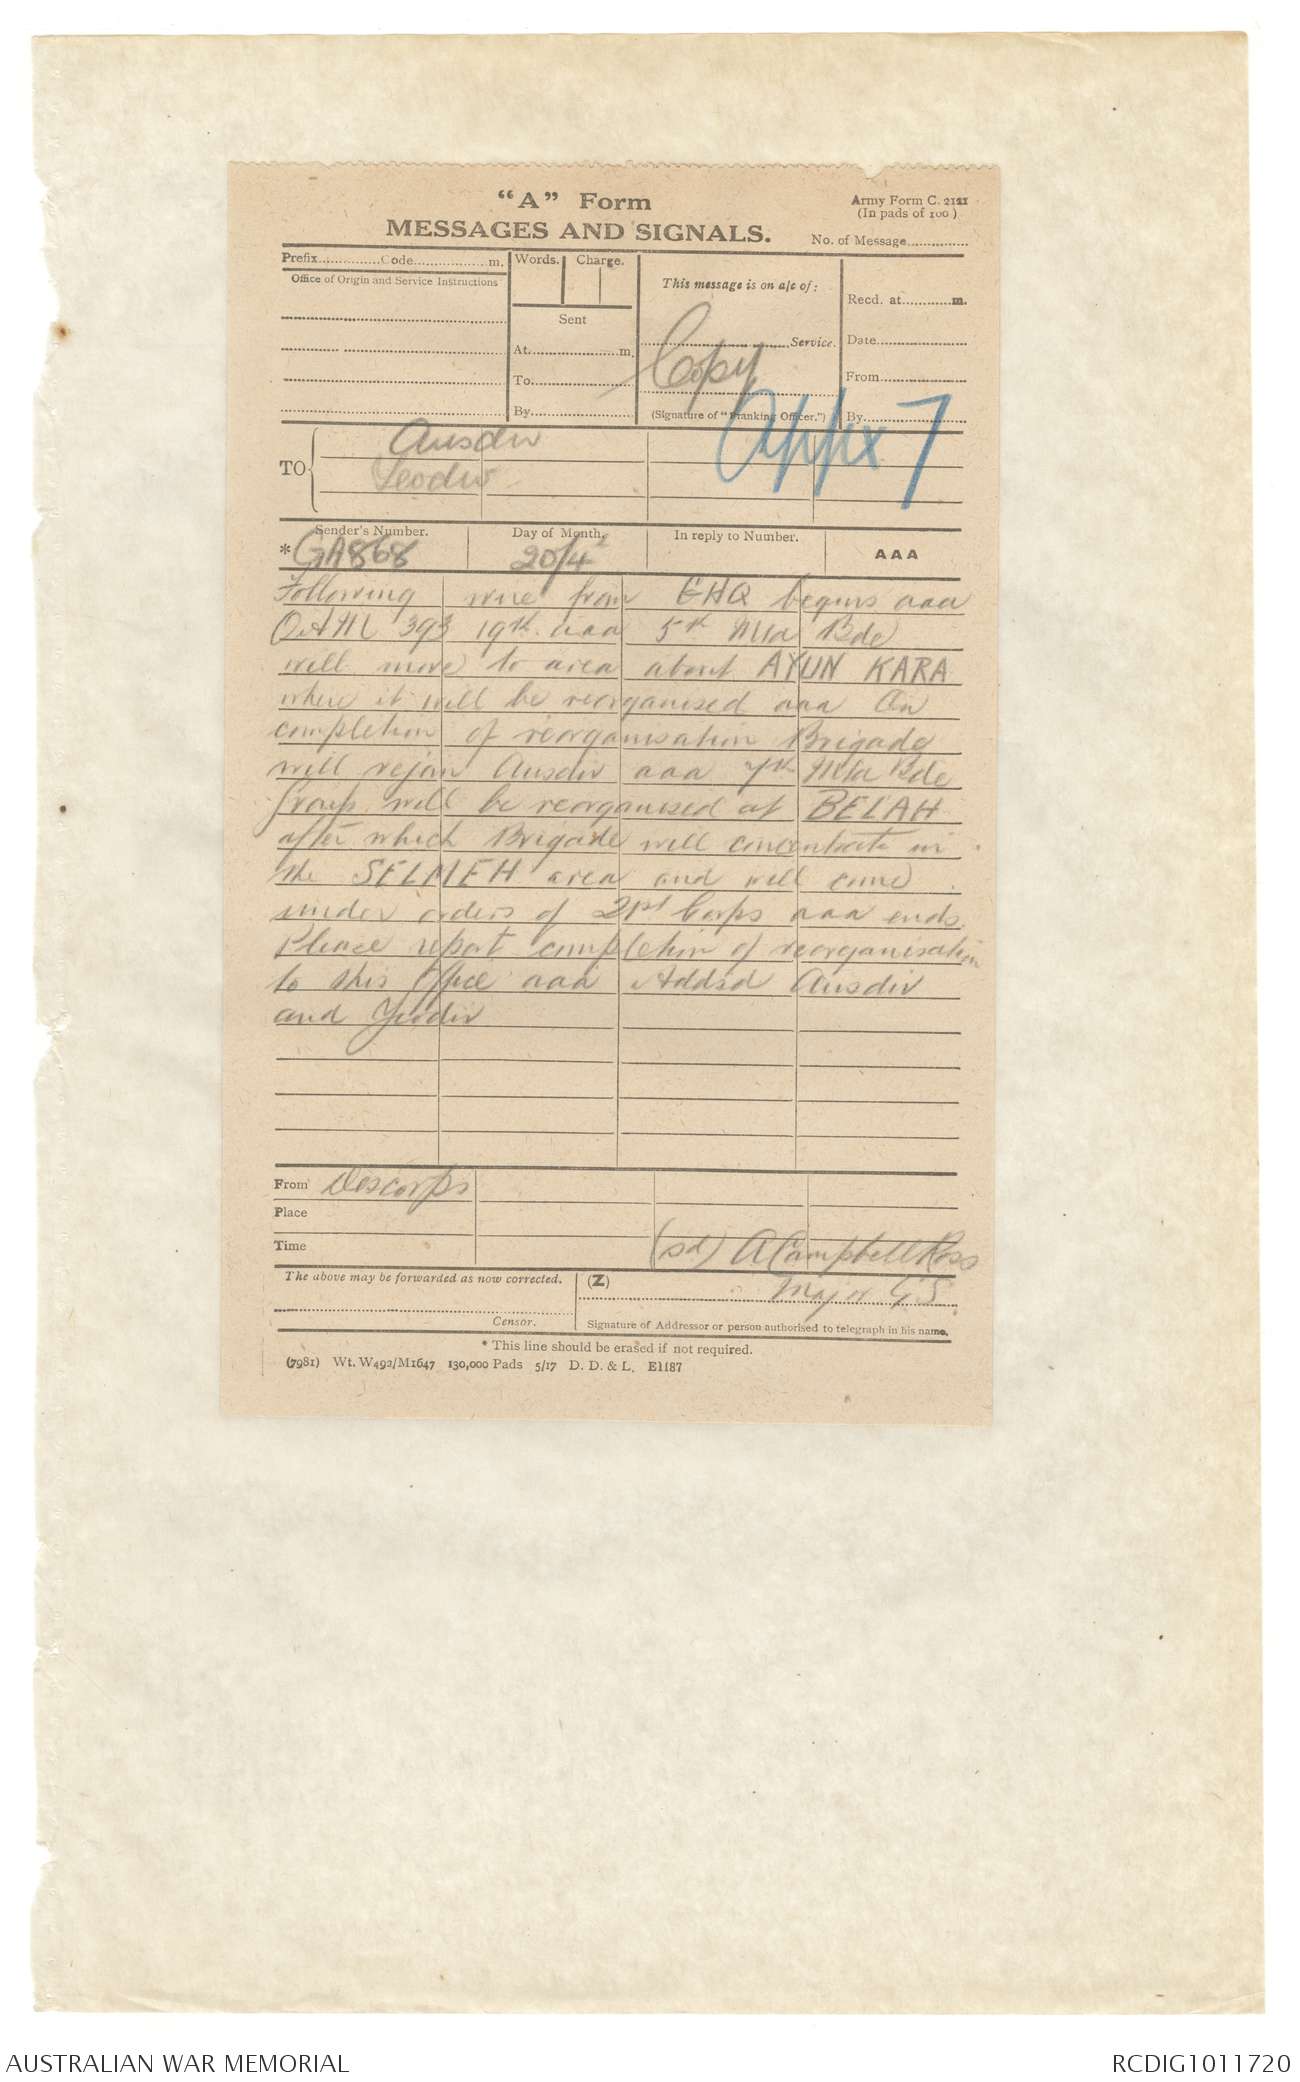 "A" Form
MESSAGES AND SIGNALS.
Army Form C. 2121
(In pads of 100)
No. of Message
Prefix Code m.
Office of Origin and Service Instructions
Words. Charge.
Sent
At m.
To
By
This message is on a/c of:
Service.
Copy
(Signature of "Franking Officer.")
Recd. at m.
Date
From
By
Appx 7
TO
Ausdiv
Yeodiv
Sender's Number. Day of Month. In reply to Number. AAA
* GA868 20/4
Following wire from GHQ begins aaa
OAM 393 19th aaa 5th Mtd Bde
will move to area about AYUN KARA
where it will be reorganised aaa On
completion of reorganisation Brigade
will rejoin Ausdiv aaa 7th Mtd Bde
Group will be reorganised at BELAH
after which Brigade will concentrate in
the SELMEH area and will come
under orders of 21st Corps aaa ends.
Please report completion of reorganisation
to this Office aaa Addsd Ausdiv
and Yeodiv
From Descorps
Place
Time
(sd) A Campbell Ross
Major GS.
The above may be forwarded as now corrected. (Z)
Censor. Signature of Addressor or person authorised to telegraph in his name.
* This line should be erased if not required.
(7981) Wt. W492/M1647 130,000 Pads 5/17 D. D. & L. E1187
AUSTRALIAN WAR MEMORIAL
RCDIG1011720